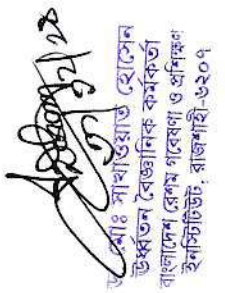 মোঃ সাখাওয়াত হোসেন
উর্ধ্বতন বৈজ্ঞানিক কর্মকর্তা
বাংলাদেশ রেশম গবেষণা ও প্রশিক্ষণ
ইনস্টিটিউট, রাজশাহী-৬২০৭